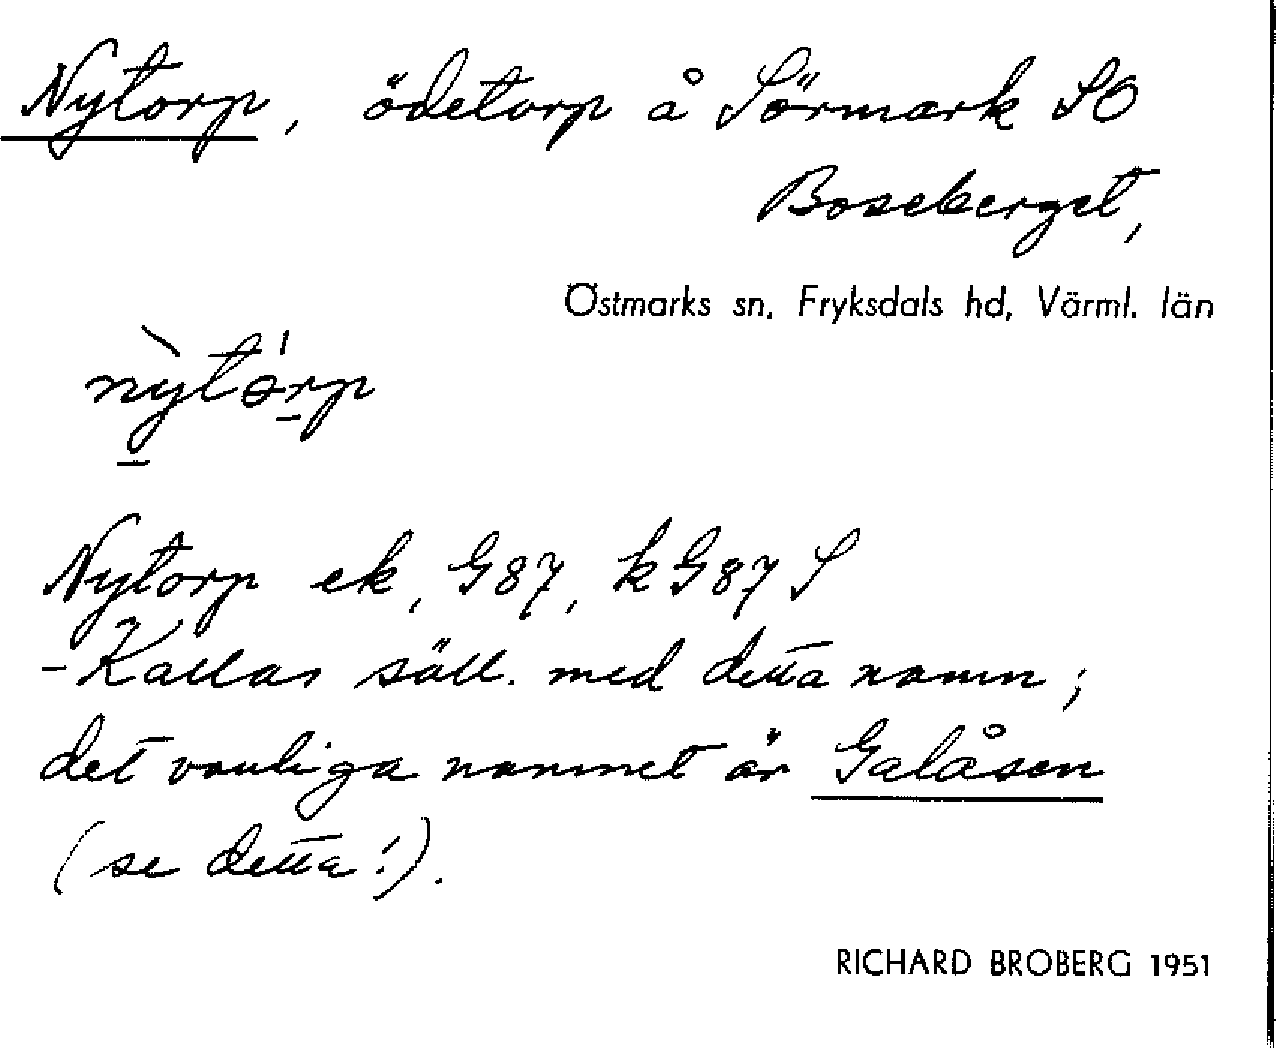 Nytorp, ödetorp å Sörmark SO
Boseberget,
Östmarks sn, Fryksdals hd, Värml. län
nỳtɵ́rp
Nytorp ek, G87, kG87 S
- Kallas säll. med detta namn;
det vanliga namnet är Galåsen
(se detta!).
RICHARD BROBERG 1951